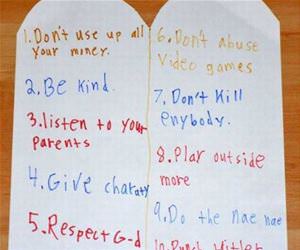 1. Don't use up all
your money.
2. Be kind.
3. listen to your
parents
4. Give charaty
5. Respect G-d
6. Don't abuse
Video games
7. Don't Kill
enybody.
8. Play outside
more
9. Do the nae nae
10. Punch Hitler